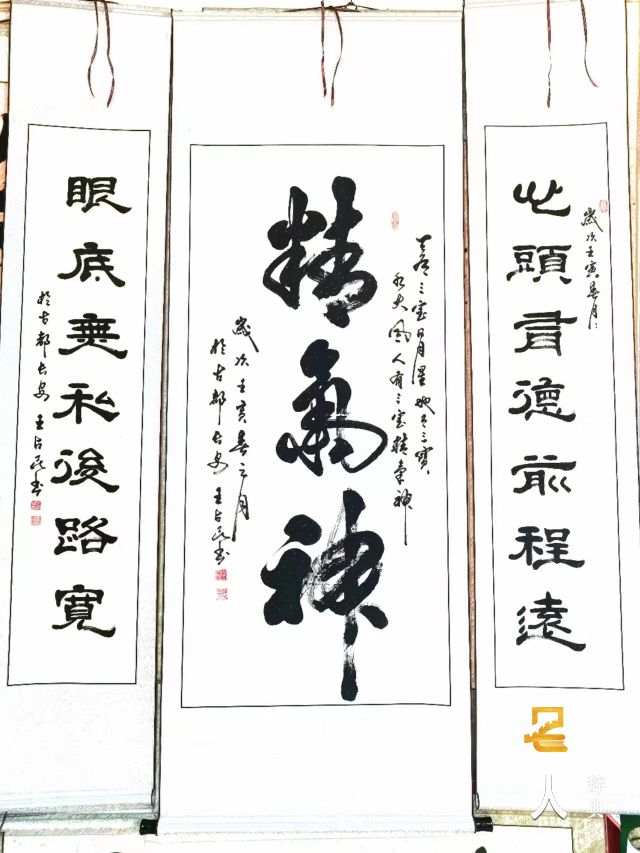 歲次壬寅春月
心頭有德前程遠
天有三寶日月星地有三寶
水火風人有三寶精氣神
精氣神
歲次壬寅春之月
於古都長安 王占民書
眼底無私後路寬
於古都長安 王占民書
人